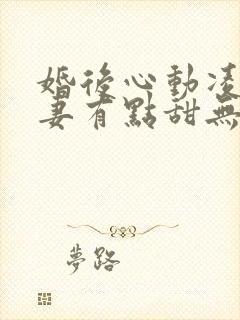 婚後心動凌
妻有點甜無
夢路